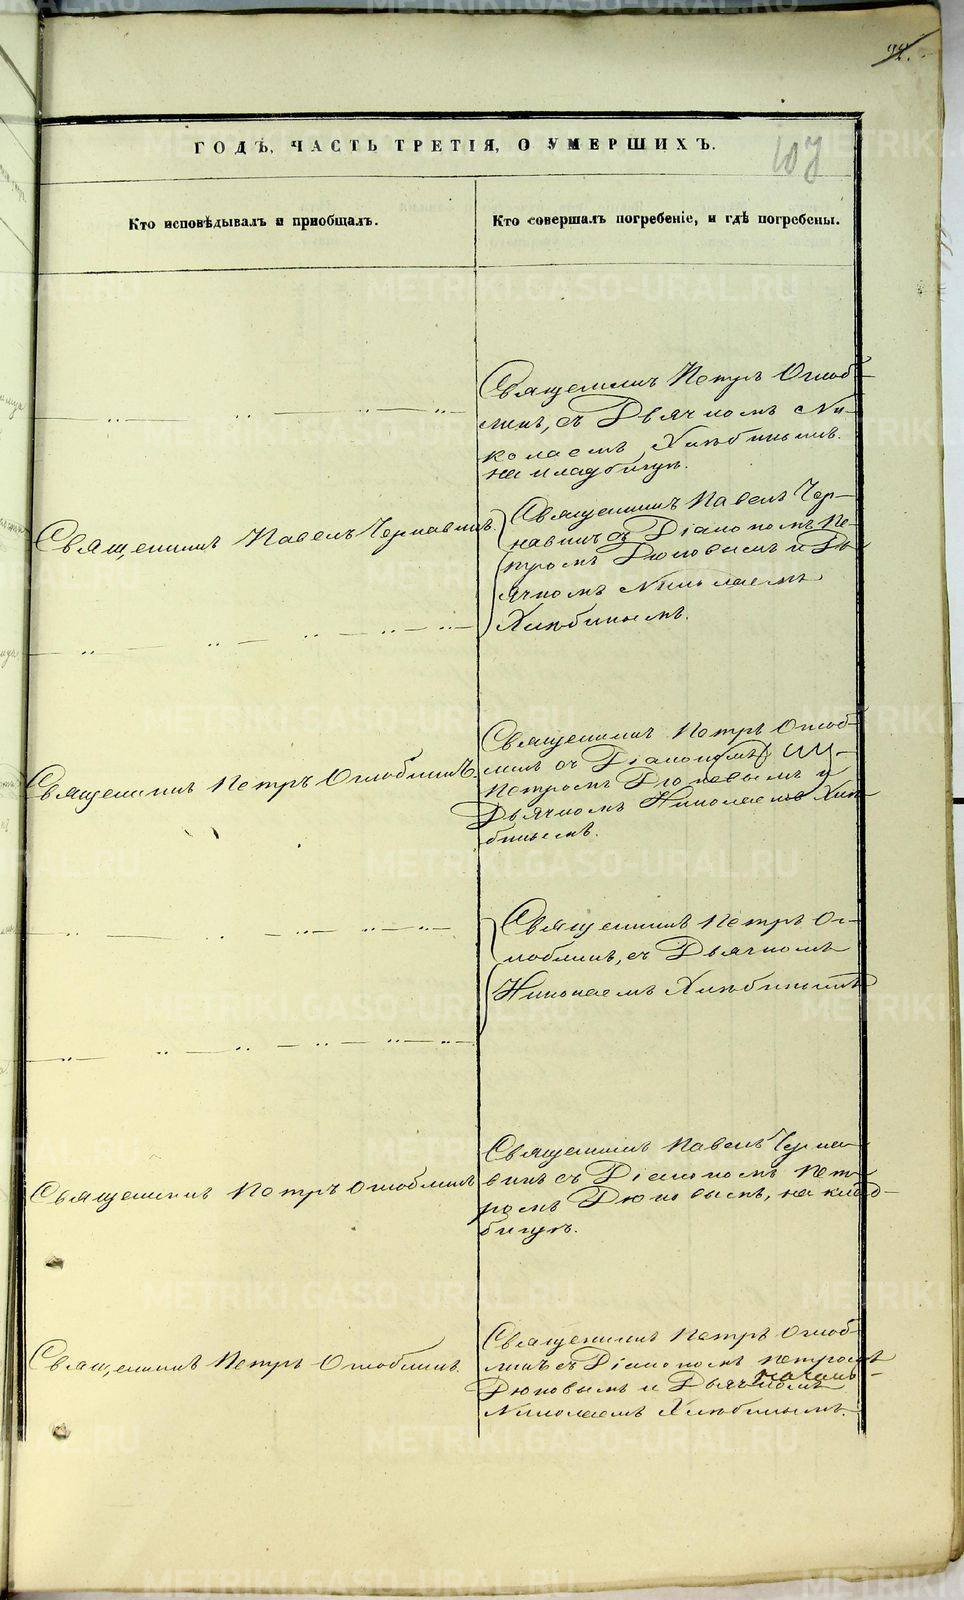 ГОДѢ, ЧАСТЬ ТРЕТІЯ, О УМЕРШИХЪ.
107
Кто исповѣдывалъ и приобщалъ.
Кто совершалъ погребеніе, и гдѣ погребены.
Священникъ Петръ Оглоб-
линъ, съ Дьячкомъ Ни-
колаемъ Хлѣбинымъ.
на кладбищѣ.
Священникъ Павелъ Чернавинъ.
Священникъ Павелъ Чер-
навинъ съ Діакономъ Пе-
тромъ Дюковымъ и Дь-
ячкомъ Николаемъ
Хлѣбинымъ.
Священникъ Петръ Оглоблинъ.
Священникъ Петръ Оглоб-
линъ съ Діакономъ
Петромъ Дюковымъ и
Дьячкомъ Николаемъ Хлѣ-
бинымъ.
Священникъ Петръ Ог-
лоблинъ, съ Дьячкомъ
Николаемъ Хлѣбинымъ
Священникъ Петръ Оглоблинъ
Священникъ Павелъ Черна-
винъ съ Діакономъ Пет-
ромъ Дюковымъ, на клад-
бищѣ.
Священникъ Петръ Оглоблинъ.
Священникъ Петръ Оглоб-
линъ съ Діакономъ Петромъ
Дюковымъ и Дьячкомъ
Николаемъ Хлѣбинымъ.
METRIKI.GASO-URAL.RU